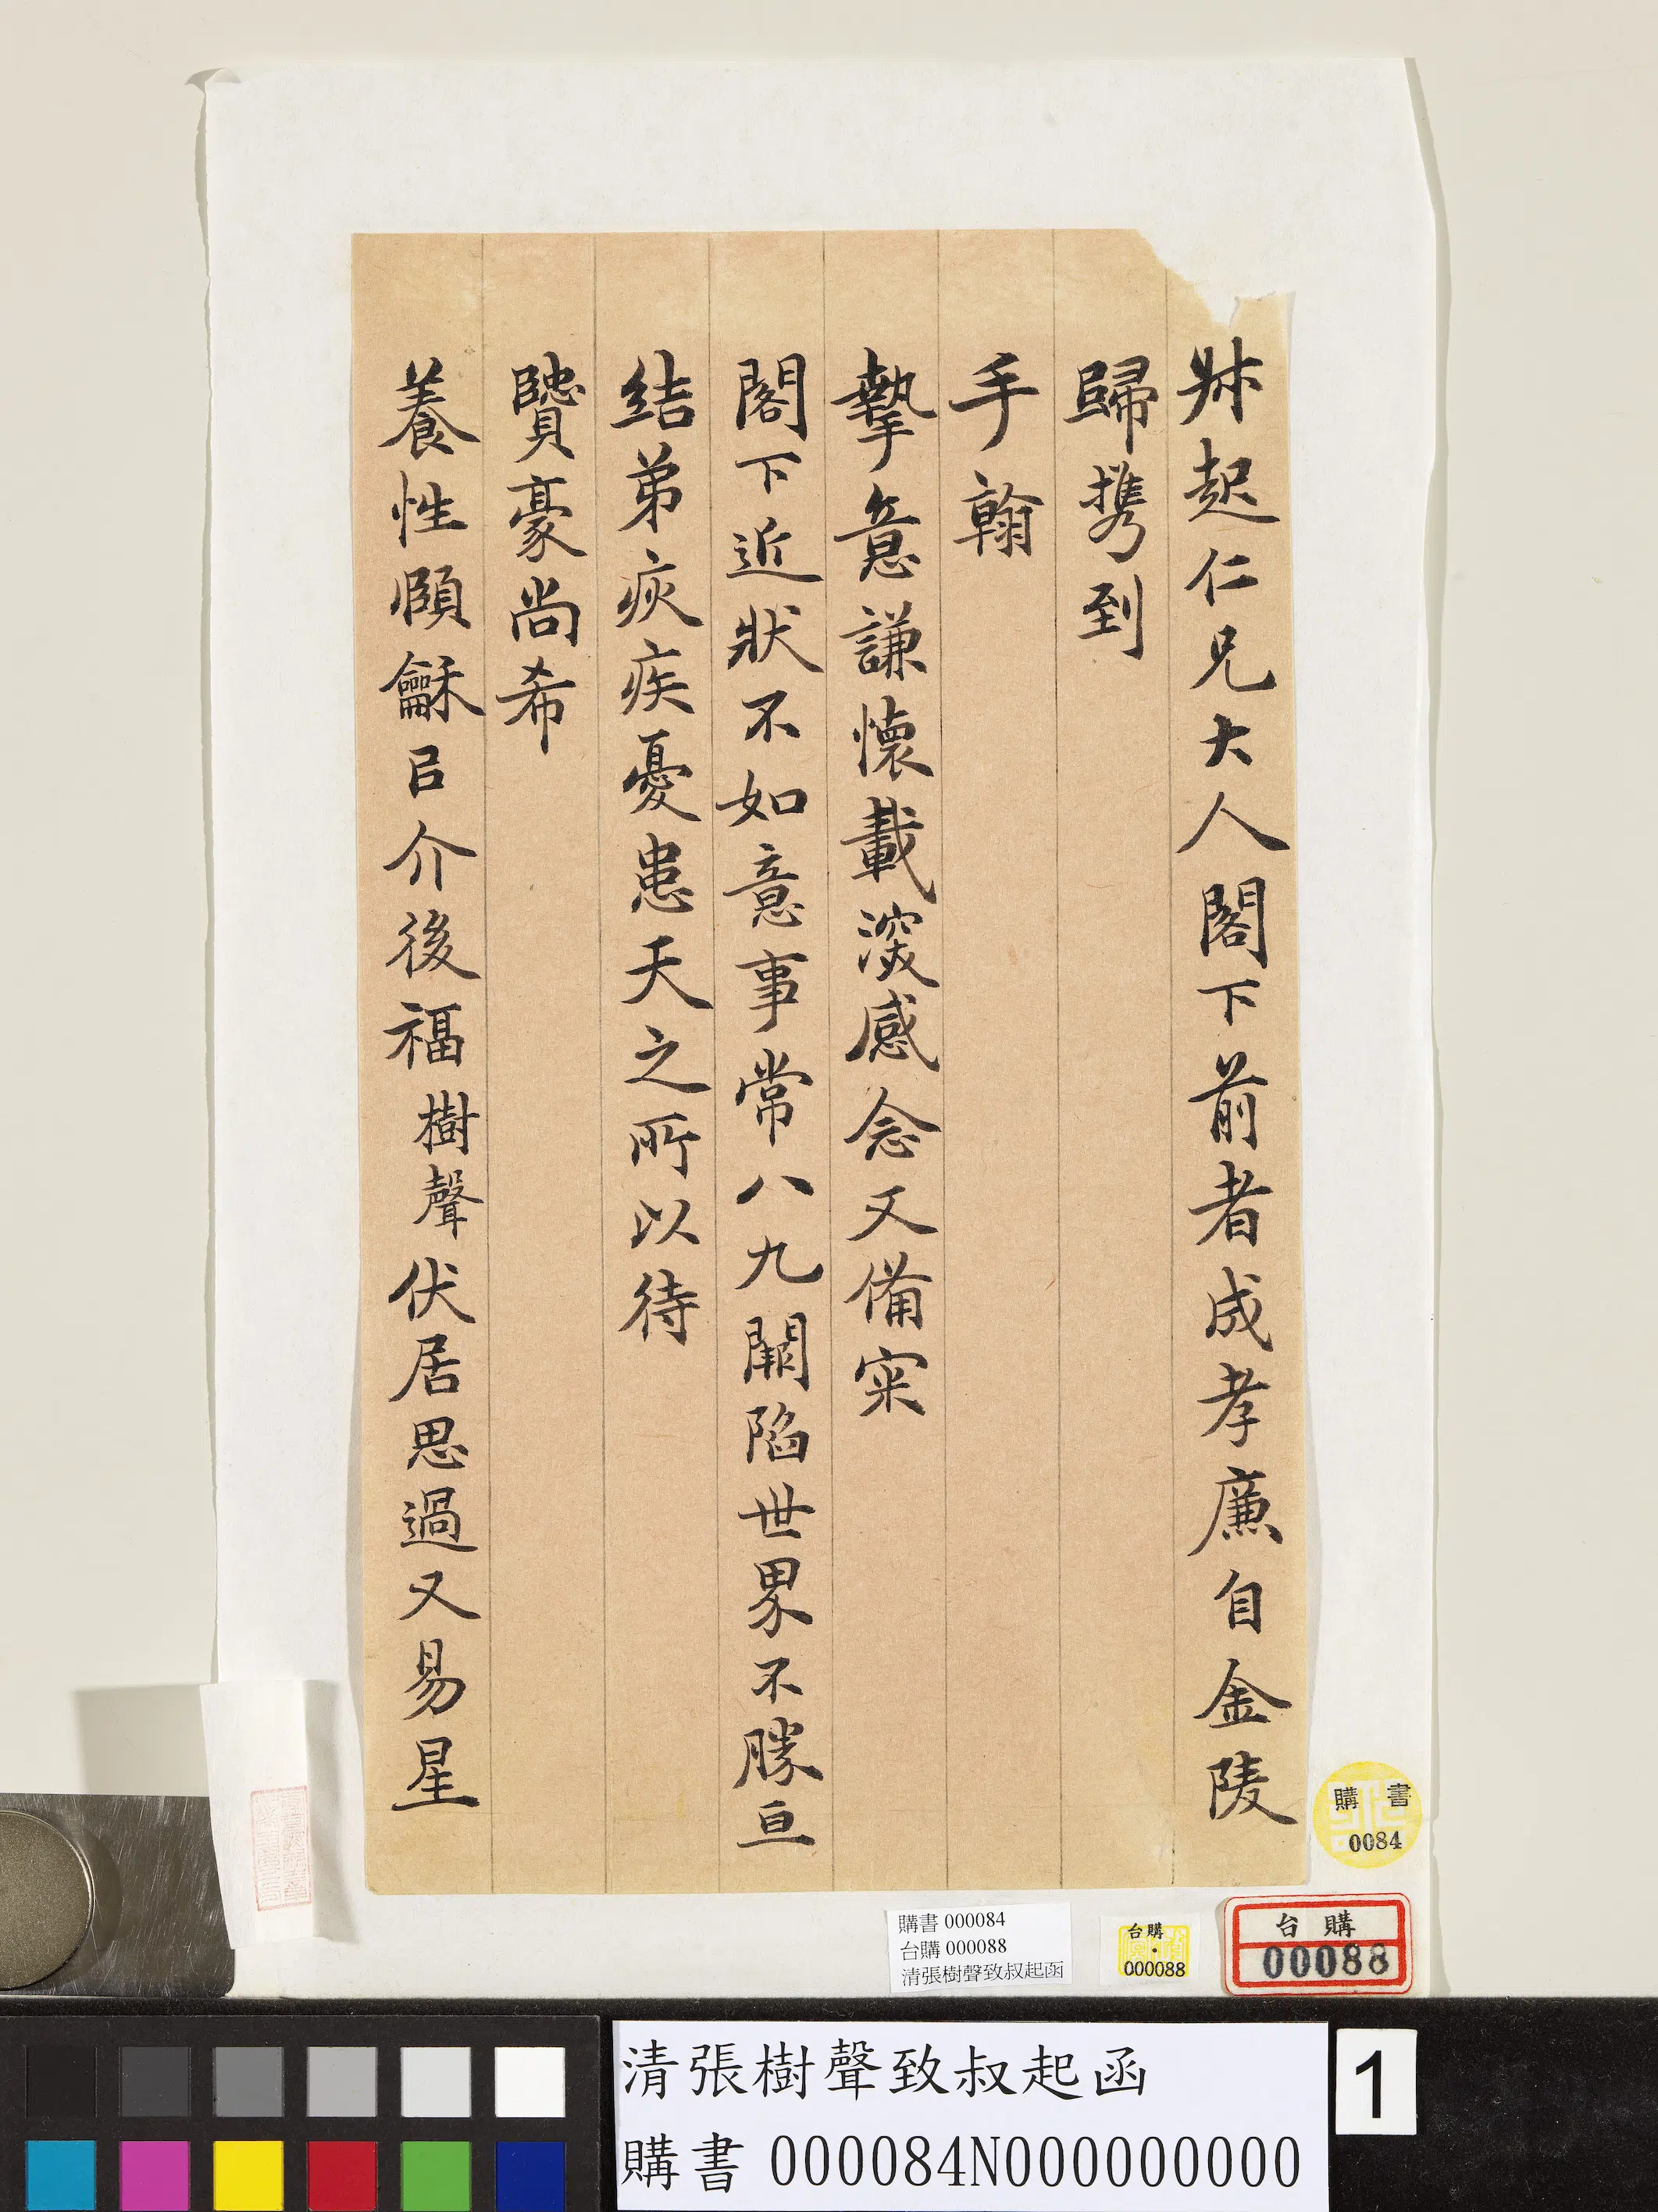 起仁兄大人閣下前者成孝廉自金陵
歸攜到
手翰
摯意謙懷載深感念又備寀
閣下近狀不如意事常八九闕陷世界不勝亘
結弟疢疾憂患天之所以待
賢豪尚希
養性頤龢㠯介後福樹聲伏居思過又易星
購書
0084
購書 000084
台購 000088
清張樹聲致叔起函
台購
000088
台購
00088
清張樹聲致叔起函
購書 000084N000000000
1